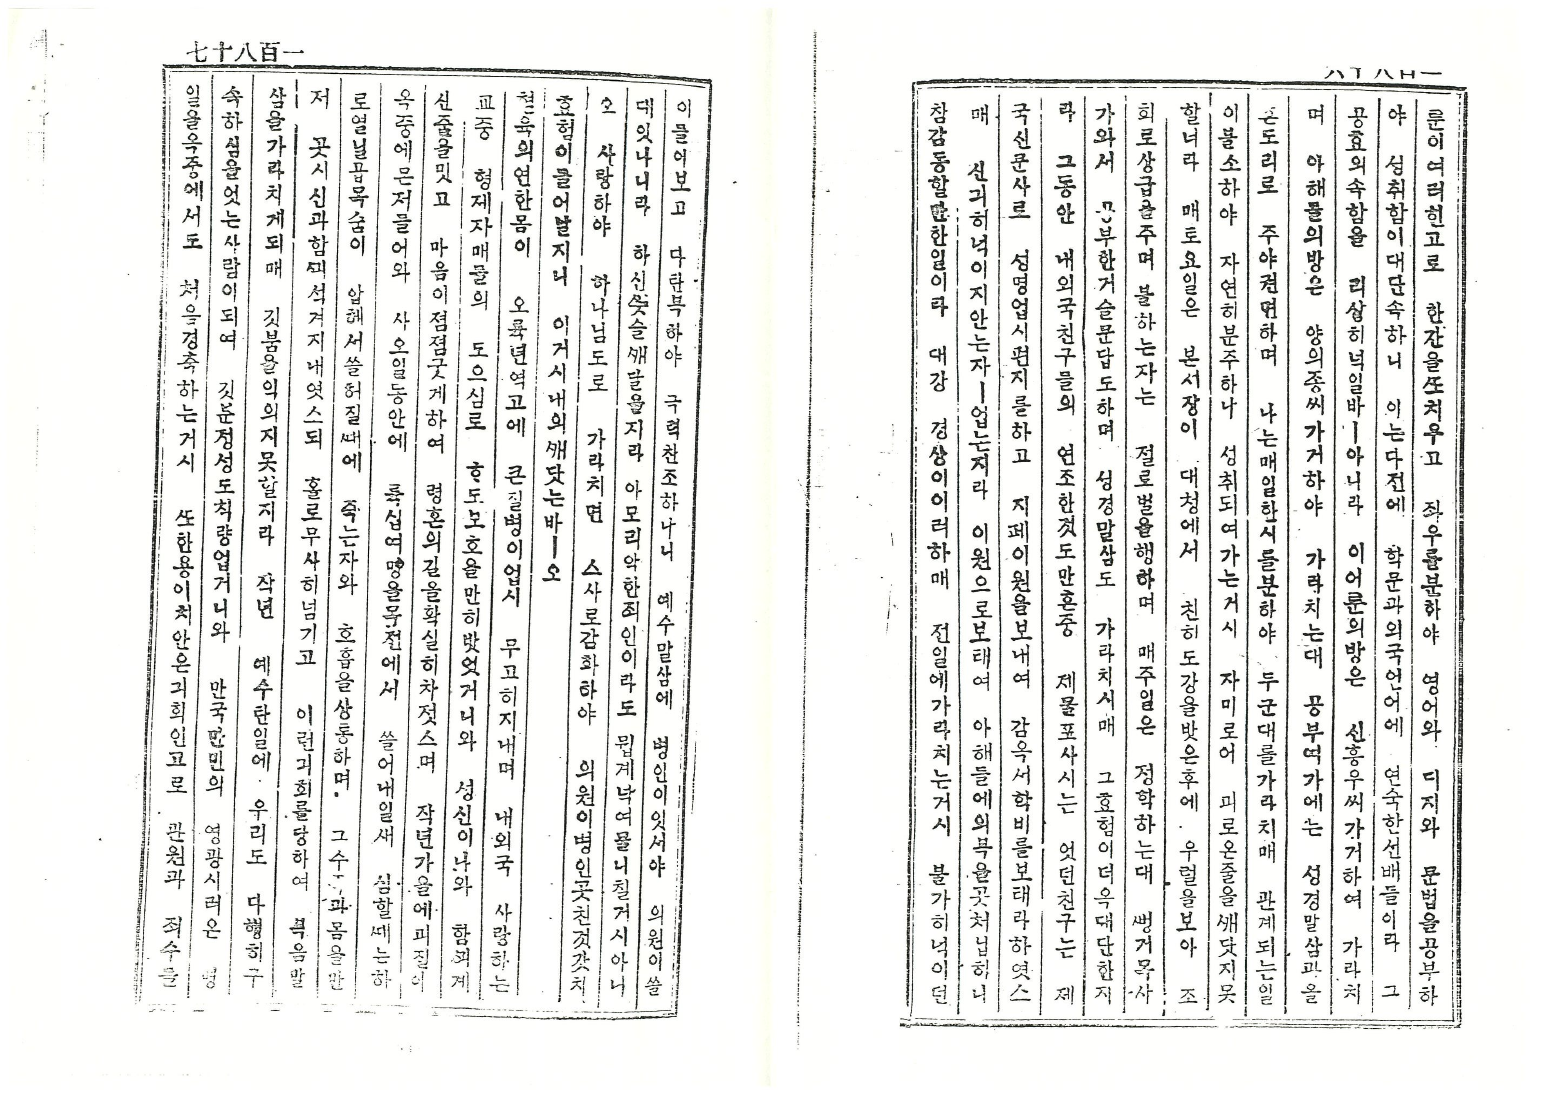 一百八十六
룬이여러힌고로 한잔을또치우고 좌우를분하야 영어와 디지와 문법을공부하
야 성취함이대단속하니 이는다전에 학문과외국언어에 연숙한선배들이라 그
공효의속함을 리상히녁일바ㅣ아니라 이어룬의방은 신흥우씨가거하여 가라치
며 아해들의방은 양의종씨가거하야 가라치는대 공부여가에는 성경말삼과올
흔도리로 주야권면하며 나는매일한시를분하야 두군대를가라치매 관계되는일
이불소하야 자연히분주하나 성취되여가는거시 자미로어 피로온줄을깨닷지못
할너라 매토요일은 본서장이 대청에서 친히도강을밧은후에 우렬을보아 조
회로상급을주며 불하는자는 절로벌을행하며 매주일은 정학하는대 뻥거목사
가와서 공부한거슬문답도하며 성경말삼도 가라치시매 그효험이더욱대단한지
라 그동안 내외국친구들의 연조한것도만흔중 제물포사시는 엇던친구는 제
국신문사로 성명업시편지를하고 지폐이원을보내여 감옥서학비를보태라하엿스
매 신긔히녁이지안는자ㅣ업는지라 이원으로보태여 아해들에의복을곳쳐닙히니
참감동할만한일이라 대강 경상이이러하매 전일에가라치는거시 불가히녁이던
一百八十七
이들이보고 다탄복하야 극력찬조하나니 예수말삼에 병인이잇서야 의원이쓸
대잇나니라 하신뜻슬깨달을지라 아모리악한죄인이라도 뮙게넉여물니칠거시아니
오 사랑하야 하나님도로 가라치면 스사로감화하야 의원이병인곳친것갓치
효험이들어날지니 이거시내의깨닷는바ㅣ오
혈육의연한몸이 오륙년역고에 큰질병이업시 무고히지내며 내외국 사랑하는
교중 형제자매들의 도으심로 하도보호을만히밧엇거니와 성신이나와 함께계
신줄을밋고 마음이졈졈굿게하여 령혼의길을확실히차젓스며 작년가을에괴질이
옥중에몬저들어와 사오일동안에 륙십여명을목전에서 쓸어내일새 심할때는하
로열닐곱목숨이 압헤서쓸허질때에 죽는자와 호흡을상통하며 그수족과몸을만
저 곳시신과함께석겨지내엿스되 홀로무사히넘기고 이런긔회를당하여 복음말
삼을가라치게되매 깃붐을익의지못할지라 작년 예수탄일에 우리도 다행히구
속하심을엇는사람이되여 깃분정성도칙량업거니와 만국만민의 영광시러온 명
일을옥중에서도 처음경축하는거시 또한용이치안은긔회인고로 관원과 죄수들